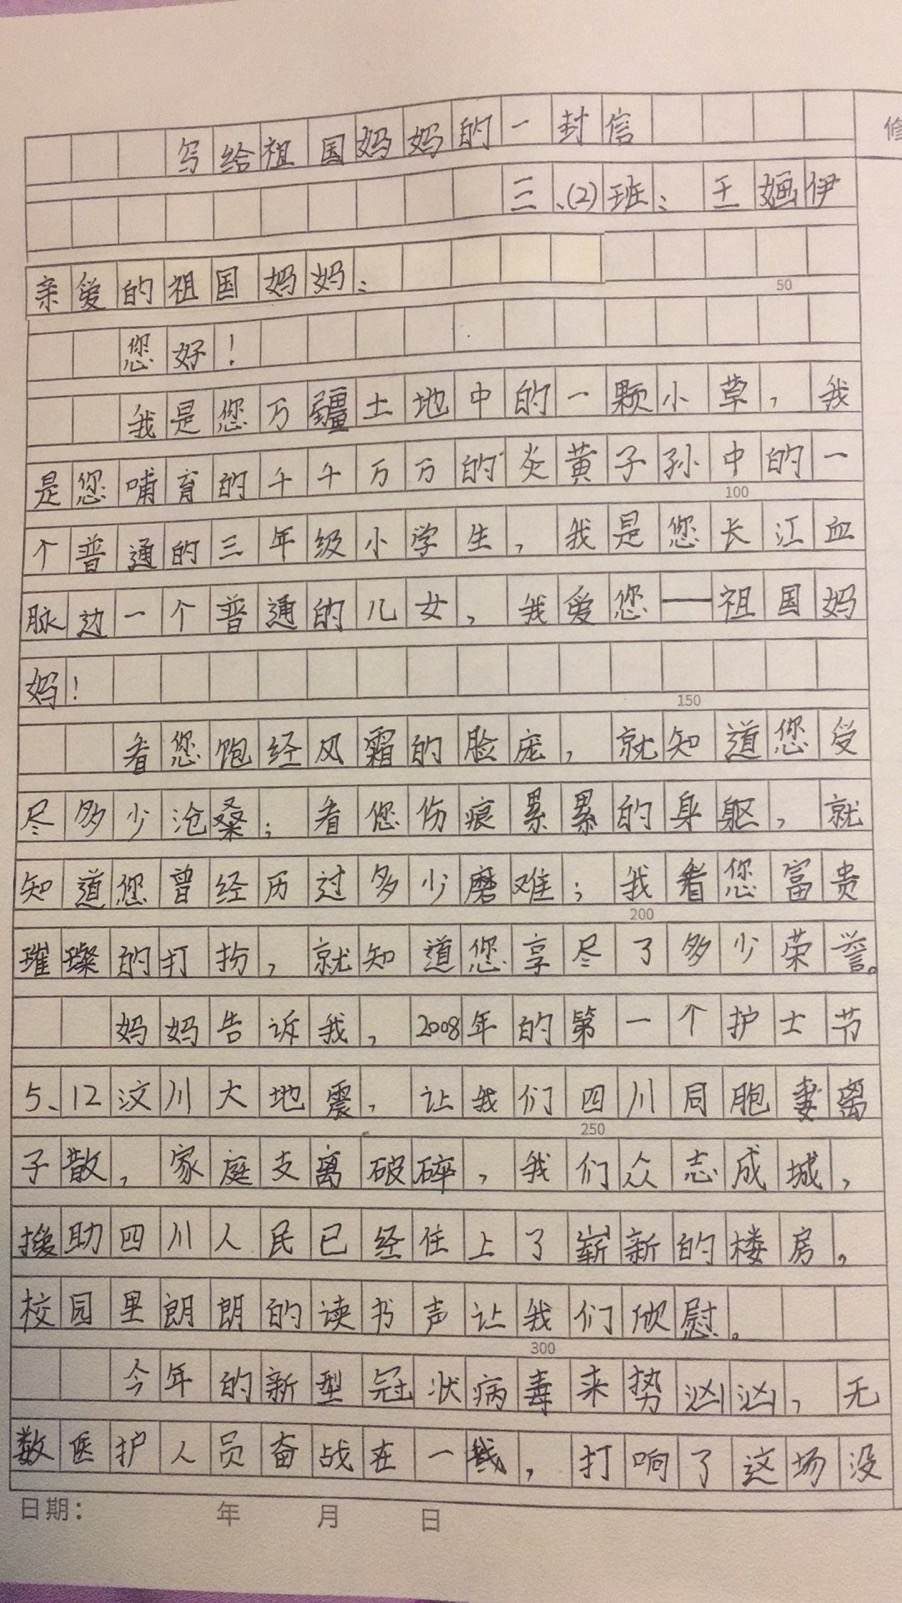 写给祖国妈妈的一封信
修
三、(2)班、王婳伊
亲爱的祖国妈妈：
50
您好！
我是您万疆土地中的一颗小草，我
是您哺育的千千万万的炎黄子孙中的一
100
个普通的三年级小学生，我是您长江血
脉边一个普通的儿女，我爱您——祖国妈
妈！
150
看您饱经风霜的脸庞，就知道您受
尽多少沧桑；看您伤痕累累的身躯，就
知道您曾经历过多少磨难；我看您富贵
200
璀璨的打扮，就知道您享尽了多少荣誉。
妈妈告诉我，2008年的第一个护士节
5、12汶川大地震，让我们四川同胞妻离
250
子散，家庭支离破碎，我们众志成城，
援助四川人民已经住上了崭新的楼房。
校园里朗朗的读书声让我们欣慰。
300
今年的新型冠状病毒来势汹汹，无
数医护人员奋战在一线，打响了这场没
日期： 年 月 日